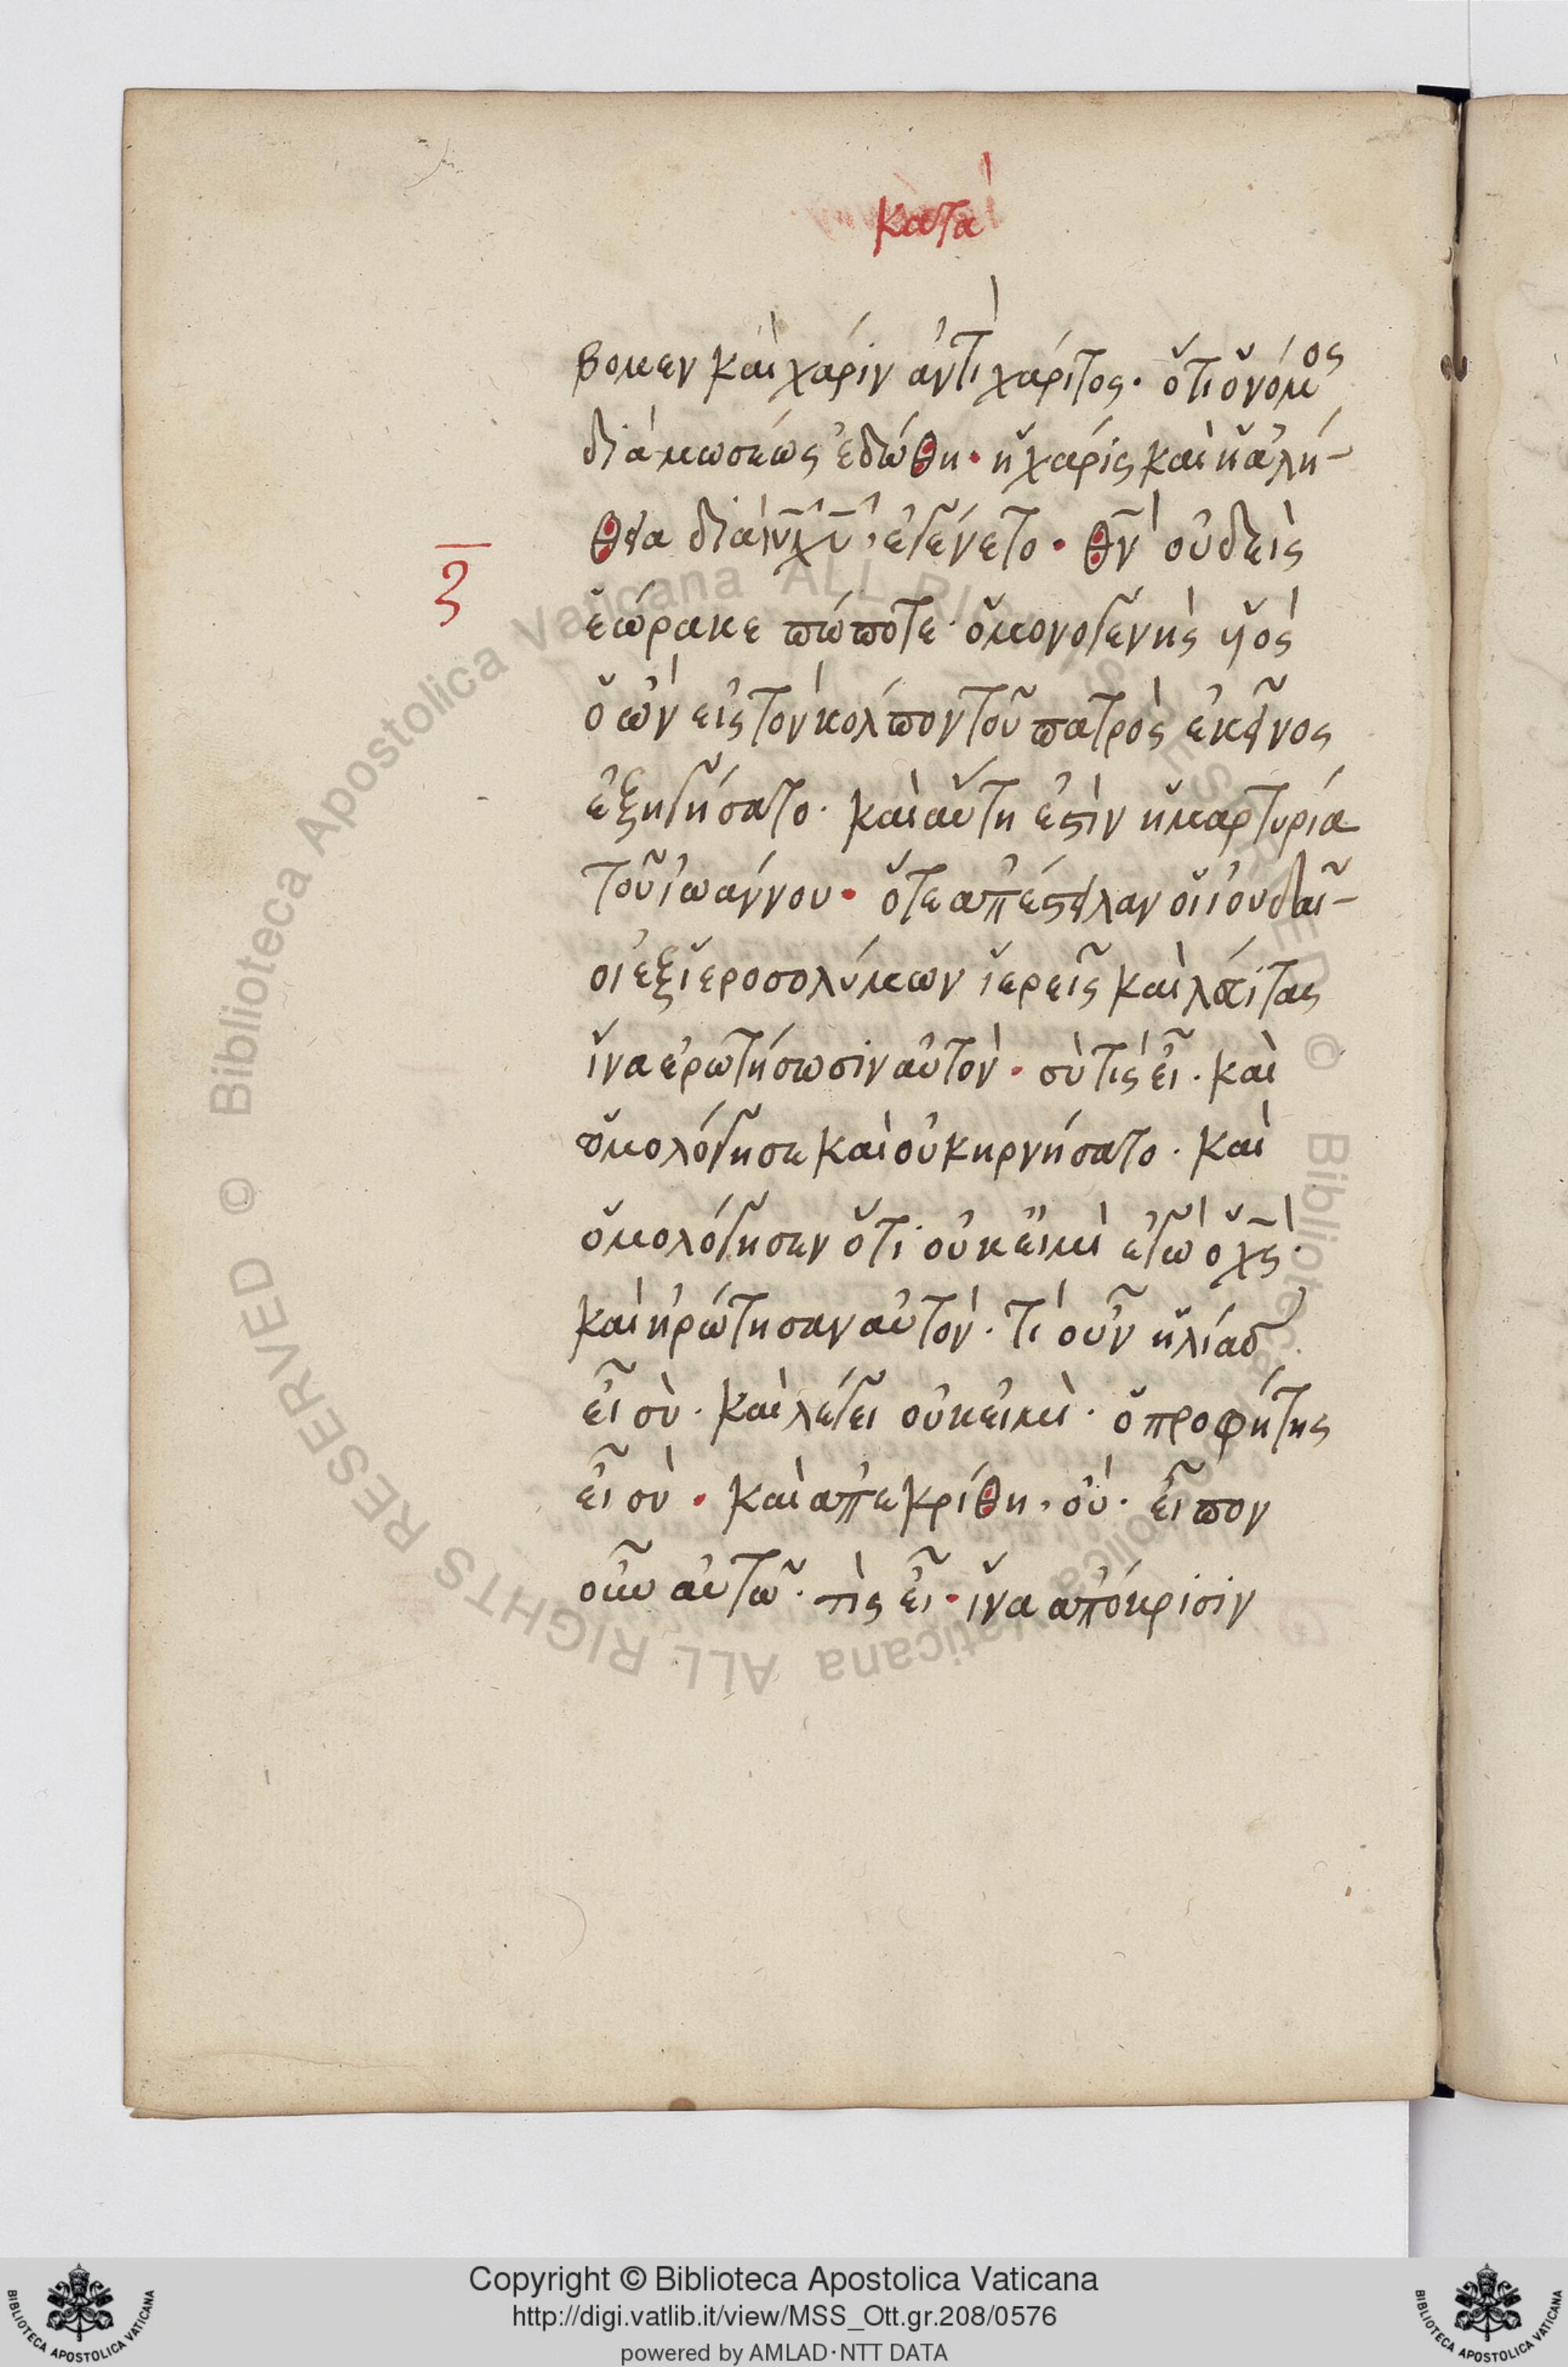 κατὰ
βομεν καὶ χάριν ἀντὶ χάριτος· ὅτι ὁ νόμος
διὰ μωσέως ἐδώθη· ἡ χάρις καὶ ἡ ἀλή-
θεια διὰ ιυ χυ ἐγένετο· θν οὐδεὶς
ζ
ἑώρακε πώποτε· ὁ μονογενὴς υἱὸς
ὁ ὢν εἰς τὸν κόλπον τοῦ πατρὸς ἐκεῖνος
ἐξηγήσατο· καὶ αὕτη ἐστὶν ἡ μαρτυρία
τοῦ ἰωάννου· ὅτε ἀπέστειλαν οἱ ἰουδαῖ-
οι ἐξ ἱεροσολύμων ἱερεῖς καὶ λευίτας
ἵνα ἐρωτήσωσιν αὐτὸν· σὺ τίς εἶ· καὶ
ὁμολόγησε καὶ οὐκ ηρνήσατο· καὶ
ὁμολόγησεν ὅτι οὐκ εἰμὶ ἐγὼ ὁ χς·
καὶ ἠρώτησαν αὐτὸν· τί οὖν ἡλίας
εἶ σὺ· καὶ λέγει οὐκ εἰμὶ· ὁ προφήτης
εἶ σὺ· καὶ ἀπεκρίθη, οὐ· εἶπον
οὖν αὐτῶ· τὶς εἶ· ἵνα ἀπόκρισιν
Copyright © Biblioteca Apostolica Vaticana
http://digi.vatlib.it/view/MSS_Ott.gr.208/0576
powered by AMLAD·NTT DATA
BIBLIOTECA APOSTOLICA VATICANA
BIBLIOTECA APOSTOLICA VATICANA
© Biblioteca Apostolica Vaticana ALL RIGHTS RESERVED
© Biblioteca Apostolica Vaticana ALL RIGHTS RESERVED